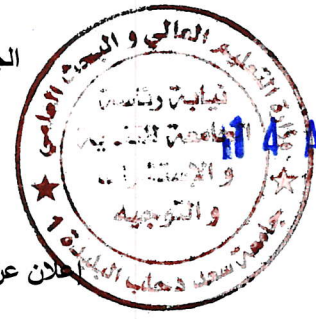 الج
وزارة التعليم العالي و البحث العلمي
نيابة رئاسة
الجامعة للتنمية
و الإستشراف
و التوجيه
جامعة سعد دحلب البليدة 1
14
إعلان عن